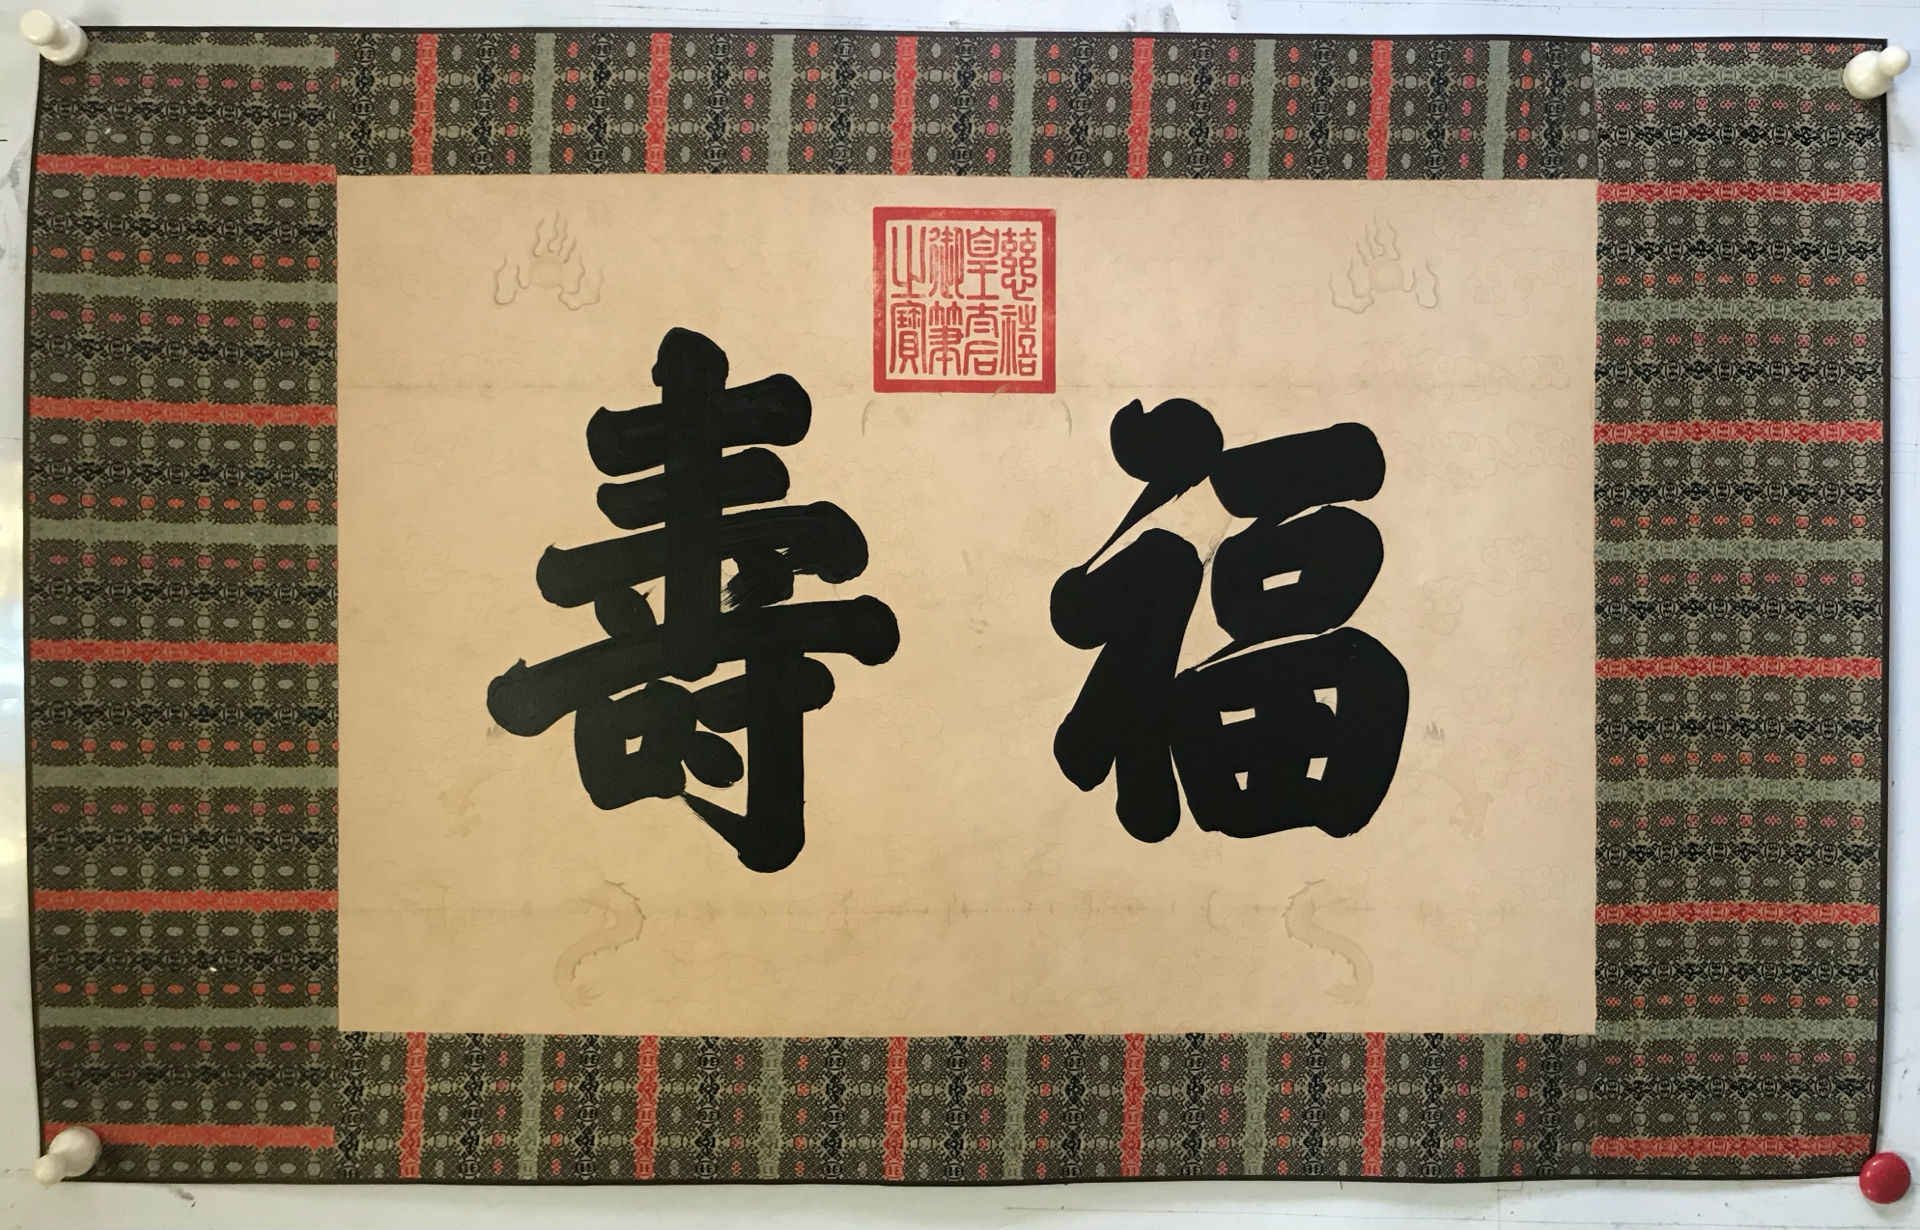 福壽
慈禧
皇太后
御筆
之寶